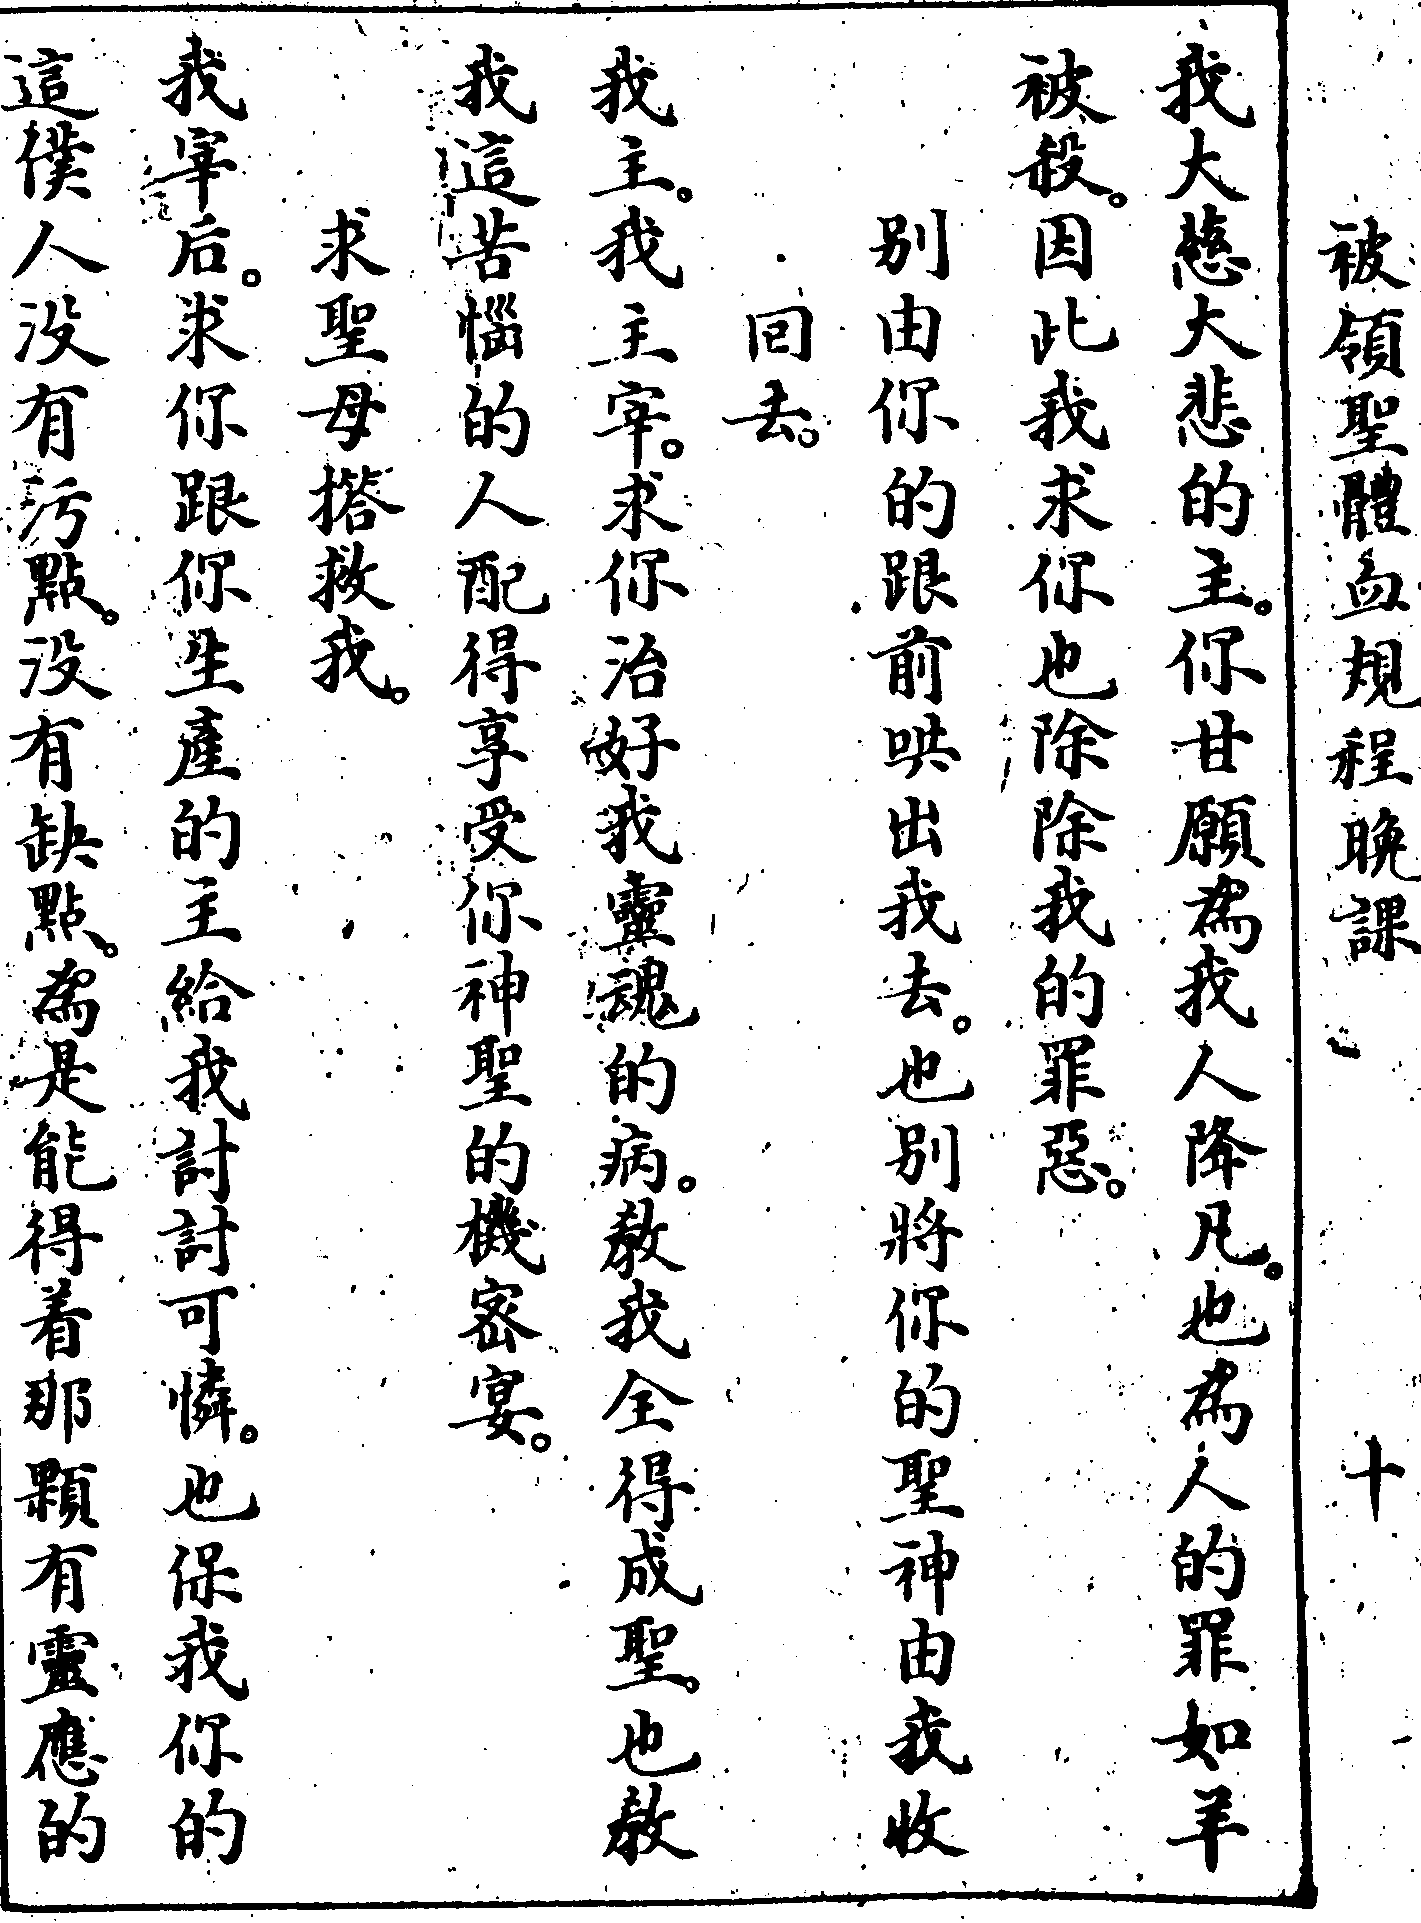 被領聖體血規程晚課 十
我大慈大悲的主。你甘願為我人降凡。也為人的罪如羊
被殺。因此我求你也除除我的罪惡。
別由你的跟前哄出我去。也別將你的聖神由我收
回去。
我主。我主宰。求你治好我靈魂的病。教我全得成聖。也教
我這苦惱的人配得享受你神聖的機密宴。
求聖母搭救我。
我宰后。求你跟你生產的主給我討討可憐。也保我你的
這僕人没有污點。没有缺點。為是能得着那顆有靈應的